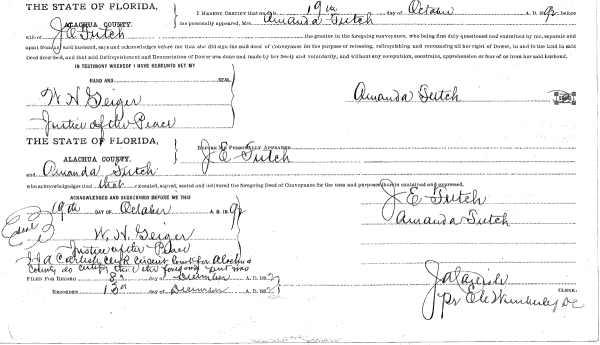 THE STATE OF FLORIDA,
ALACHUA COUNTY.
I HEREBY CERTIFY That on this 19th day of October A. D. 1892 before
me personally appeared, Mrs Amanda Futch
wife of J E Futch the grantor in the foregoing conveyance, who being first duly questioned and examined by me, separate and
apart from her said husband, says and acknowledges before me that she did sign the said deed of Conveyance for the purpose of releasing, relinquishing and renouncing all her right of Dower, in and to the land in said
Deed described, and that said Relinquishment and Renunciation of Dower was done and made by her freely and voluntarily, and without any compulsion, constraint, apprehension or fear of or from her said husband.
IN TESTIMONY WHEREOF I HAVE HEREUNTO SET MY
HAND AND SEAL
W. H. Geiger
Justice of the Peace
Amanda Futch
THE STATE OF FLORIDA,
ALACHUA COUNTY.
BEFORE ME PERSONALLY APPEARED
J E Futch
and Amanda Futch
who acknowledges that that executed, signed, sealed and delivered the foregoing Deed of Conveyance for the uses and purposes therein contained and expressed.
ACKNOWLEDGED AND SUBSCRIBED BEFORE ME THIS
19th DAY OF October A. D. 1892
W. H. Geiger
Justice of the Peace
J. E Futch
Amanda Futch
clerk circuit court for Alachua
county do certify that the foregoing
FILED FOR RECORD 8 day of December A. D. 189
RECORDED 13th day of December A. D. 189
CLERK.
pr E C Wimberly DC